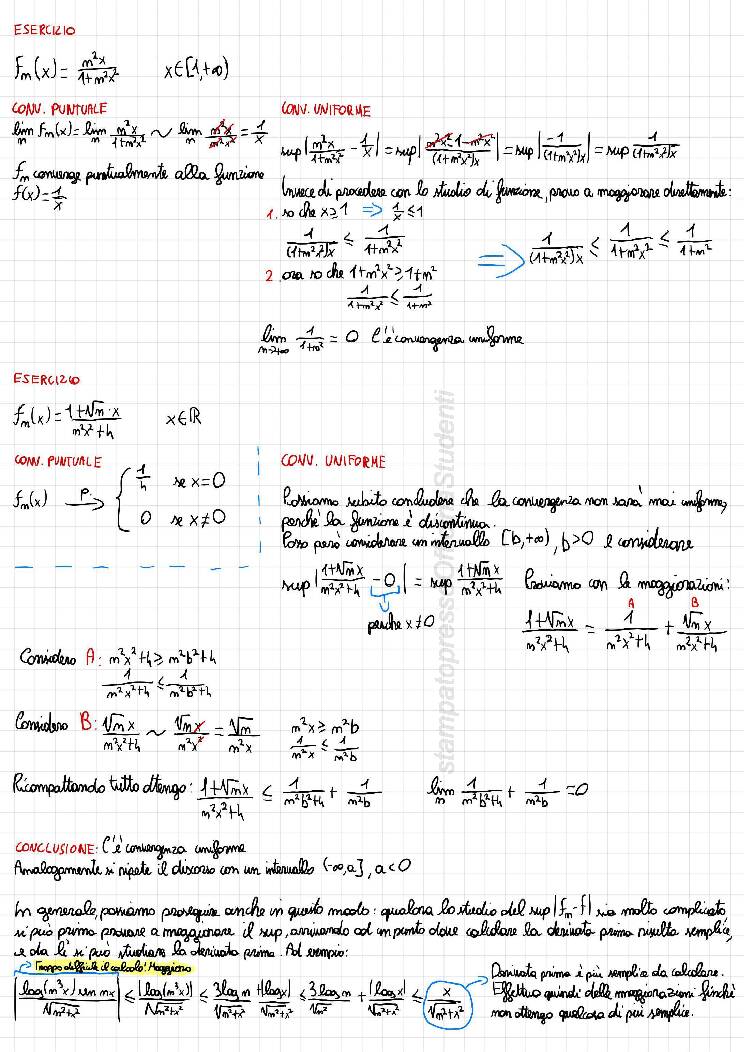 ESERCIZIO
fₙ(x) = n²x/(1+n²x²)   x∈[1,+∞)
CONV. PUNTUALE
lim fₙ(x) = lim n²x/(1+n²x²) ∼ lim n²x/(n²x²) = 1/x
fₙ converge puntualmente alla funzione
f(x) = 1/x
CONV. UNIFORME
sup|n²x/(1+n²x²) - 1/x| = sup|(n²x²-1-n²x²)/((1+n²x²)x)| = sup|-1/((1+n²x²)x)| = sup 1/((1+n²x²)x)
Invece di procedere con lo studio di funzione, provo a maggiorare direttamente:
1. so che x≥1 ⇒ 1/x ≤ 1
1/((1+n²x²)x) ≤ 1/(1+n²x²)
2. ora so che 1+n²x² ≥ 1+n²
1/(1+n²x²) ≤ 1/(1+n²)
⇒ 1/((1+n²x²)x) ≤ 1/(1+n²x²) ≤ 1/(1+n²)
lim n→+∞ 1/(1+n²) = 0 C'è convergenza uniforme
ESERCIZIO
fₙ(x) = (1+√n·x)/(n²x²+4)   x∈ℝ
CONV. PUNTUALE
fₙ(x) →p. { 1/4 se x=0
0 se x≠0
CONV. UNIFORME
Possiamo subito concludere che la convergenza non sarà mai uniforme,
perché la funzione è discontinua.
Posso però considerare un intervallo [b,+∞), b>0 e considerare
sup|(1+√n x)/(n²x²+4) - 0| = sup (1+√n x)/(n²x²+4)   Proviamo con le maggiorazioni:
perché x≠0
(1+√n x)/(n²x²+4) = A 1/(n²x²+4) + B √n x/(n²x²+4)
Considero A: n²x²+4 ≥ n²b²+4
1/(n²x²+4) ≤ 1/(n²b²+4)
Considero B: √n x/(n²x²+4) ∼ √n x/(n²x²) = √n/(n²x)   n²x ≥ n²b
1/(n²x) ≤ 1/(n²b)
Ricompattando tutto ottengo: (1+√n x)/(n²x²+4) ≤ 1/(n²b²+4) + 1/(n²b)   lim n 1/(n²b²+4) + 1/(n²b) = 0
CONCLUSIONE: C'è convergenza uniforme
Analogamente si ripete il discorso con un intervallo (-∞,a], a<0
In generale, possiamo proseguire anche in questo modo: qualora lo studio del sup|fₙ-f| sia molto complicato
si può prima provare a maggiorare il sup, arrivando ad un punto dove calcolare la derivata prima risulta semplice,
e da lì si può studiare la derivata prima. Ad esempio:
Troppo difficile il calcolo! Maggioro
|log(n³x) sin nx/√(n²+x²)| ≤ |log(n³x)|/√(n²+x²) ≤ 3log n/√(n²+x²) + |log x|/√(n²+x²) ≤ 3log n/√n² + |log x|/√(n²+x²) ≤ x/√(n²+x²)
Derivata prima è più semplice da calcolare.
Effettuo quindi delle maggiorazioni finché
non ottengo qualcosa di più semplice.